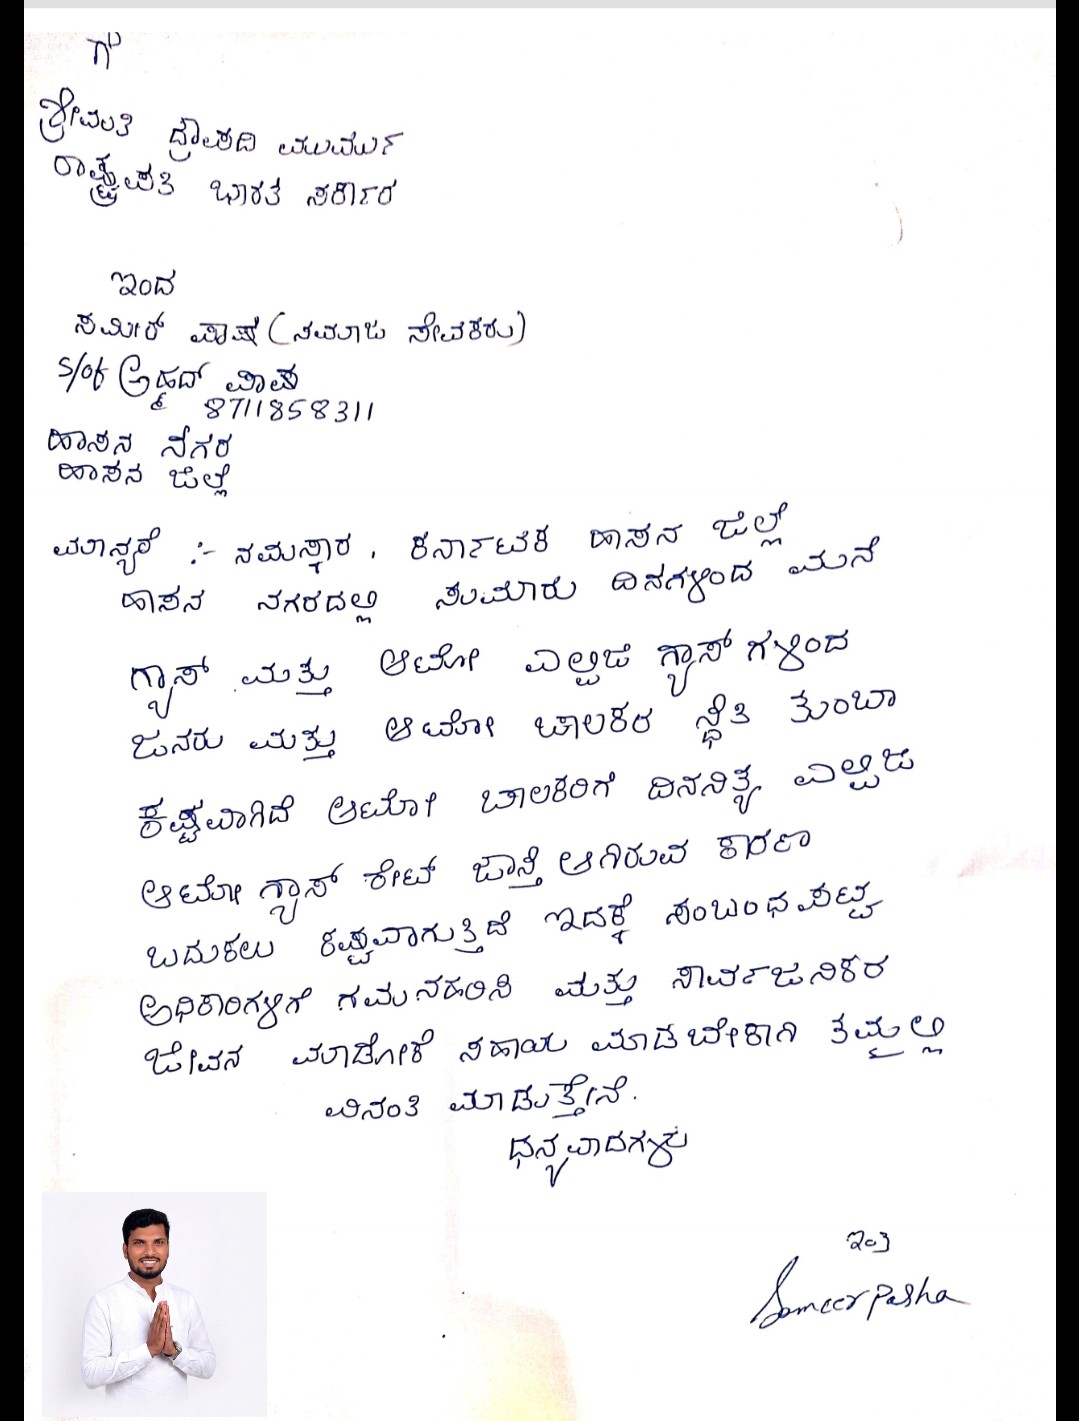 ಗೆ
ಶ್ರೀಮತಿ ದ್ರೌಪದಿ ಮುರ್ಮು
ರಾಷ್ಟ್ರಪತಿ ಭಾರತ ಸರ್ಕಾರ
ಇಂದ
ಸಮೀರ್ ಪಾಷ (ಸಮಾಜ ಸೇವಕರು)
S/of ಅಹ್ಮದ್ ಪಾಷ
8711858311
ಹಾಸನ ನಗರ
ಹಾಸನ ಜಿಲ್ಲೆ
ಮಾನ್ಯರೆ :- ನಮಸ್ಕಾರ, ಕರ್ನಾಟಕ ಹಾಸನ ಜಿಲ್ಲೆ
ಹಾಸನ ನಗರದಲ್ಲಿ ಸುಮಾರು ದಿನಗಳಿಂದ ಮನೆ
ಗ್ಯಾಸ್ ಮತ್ತು ಆಟೋ ಎಲ್ಪಿಜಿ ಗ್ಯಾಸ್ ಗಳಿಂದ
ಜನರು ಮತ್ತು ಆಟೋ ಚಾಲಕರ ಸ್ಥಿತಿ ತುಂಬಾ
ಕಷ್ಟವಾಗಿದೆ ಆಟೋ ಚಾಲಕರಿಗೆ ದಿನನಿತ್ಯ ಎಲ್ಪಿಜಿ
ಆಟೋ ಗ್ಯಾಸ್ ರೇಟ್ ಜಾಸ್ತಿ ಆಗಿರುವ ಕಾರಣ
ಬದುಕಲು ಕಷ್ಟವಾಗುತ್ತಿದೆ ಇದಕ್ಕೆ ಸಂಬಂಧಪಟ್ಟ
ಅಧಿಕಾರಿಗಳಿಗೆ ಗಮನಹರಿಸಿ ಮತ್ತು ಸಾರ್ವಜನಿಕರ
ಜೀವನ ಮಾಡೋಕೆ ಸಹಾಯ ಮಾಡಬೇಕಾಗಿ ತಮ್ಮಲ್ಲಿ
ವಿನಂತಿ ಮಾಡುತ್ತೇನೆ.
ಧನ್ಯವಾದಗಳು
ಇಂತಿ
Sameer Pasha